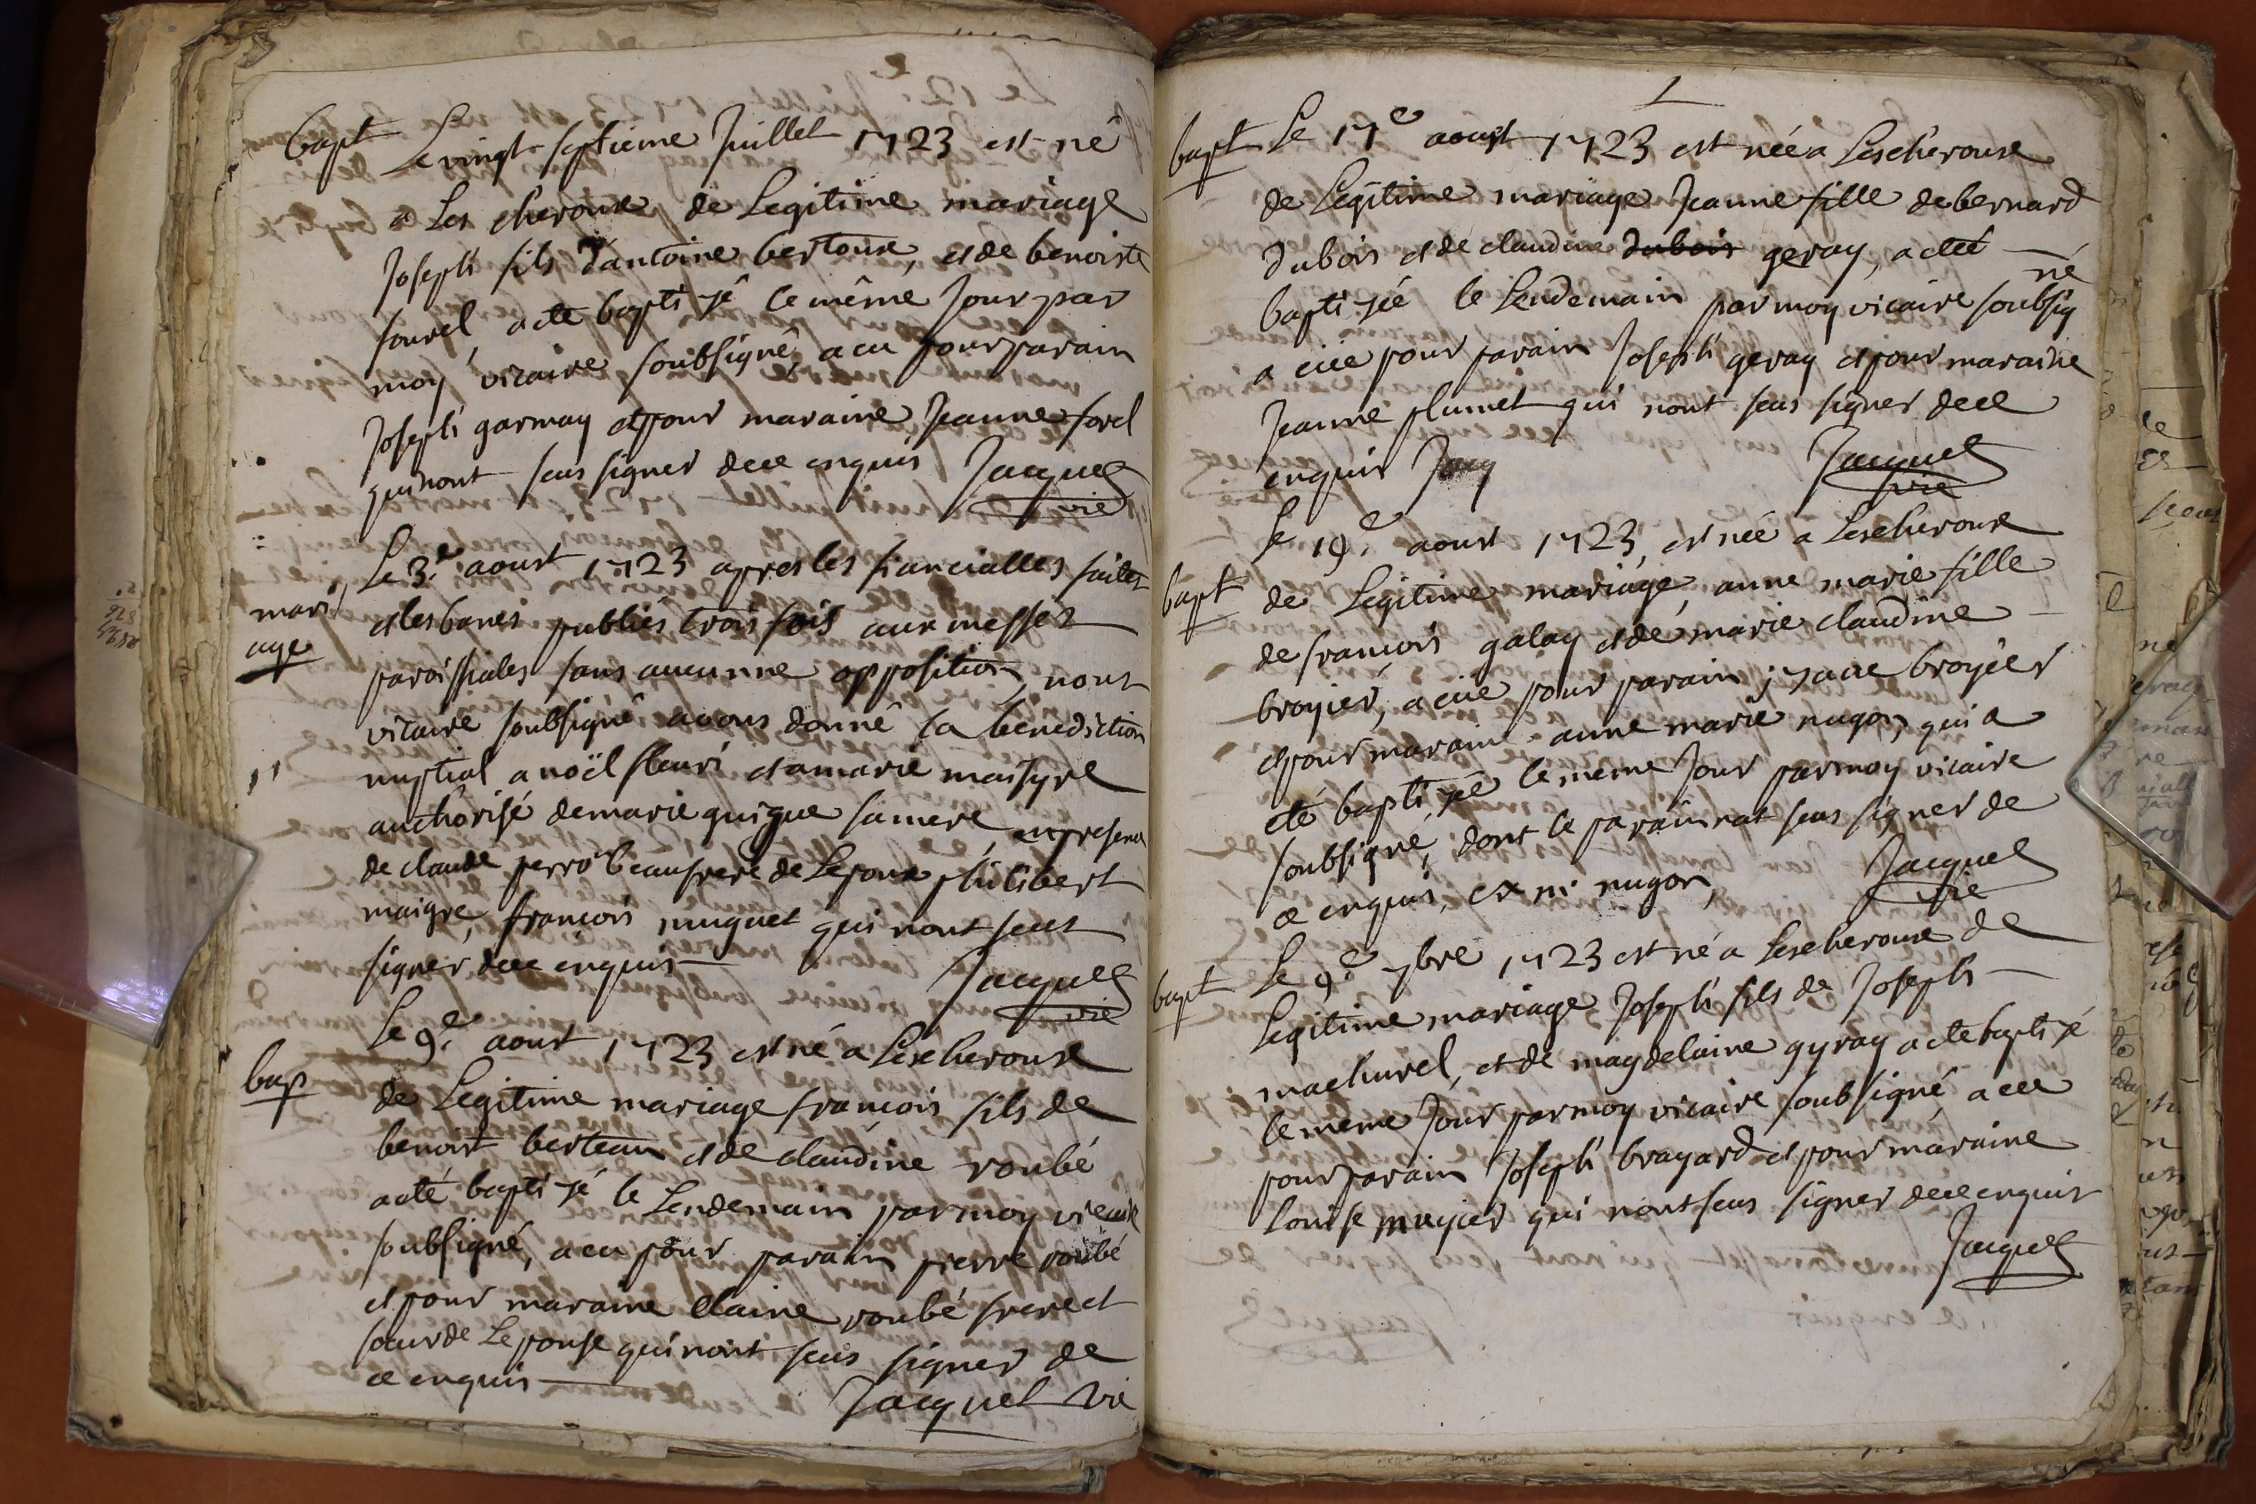 bapt Le vingt septieme Juillet 1723 est né
a Les cheroux de Legitime mariage
Joseph fils d'antoine bertoux, et de benoiste
sourel, a eté bapti zé le même Jour par
moy vicaire soubsigné, a eu pour parain
Joseph garmay et pour maraine Jeanne forel
qui nont seus signer de ce enquis Jacquet
vic
mari
age
Le 3.e aoust 1723 apres les fiancialles faites
et les bancs publiés trois fois aux messes
paroissiales sans aucunne opposition, nous
vicaire soubsigné avons donné la benediction
nuptial a noël fleuri et a marie maistre
authorisé de marie guigue sa mere, en presence
de claude perro beaufrere de Lepoux philibert
maigre, françois nuguet qui nont seus
signer de ce enquis Jacquet
vic
bap
Le 9.e aoust 1723 est né a Lescheroux
de Legitime mariage françois fils de
benoist berteau et de claudine roubé
a eté bapti zé le Lendemain par moy vicaire
soubsigné, a eu pour parain pierre roubé
et pour maraine claire roubé frere et
soeur de Lepouse qui nont seus signer de
ce enquis Jacquet vic
bapt Le 17e aoust 1723 est née a Lescheroux
de Legitime mariage Jeanne fille de bernard
dubois et de claudine dubois geray, a eté
bapti zée le Lendemain par moy vicaire soubsig
né
a eüe pour parain Joseph geray et pour maraine
Jeanne plumet qui nont seus signer de ce
enquis Jacquet
vic
bapt
Le 19.e aoust 1723, est née a Lescheroux
de Legitime mariage, anne marie fille
de françois galay et de marie claudine
broyier, a eüe pour parain broyier
et pour maraine anne marie nugon, qui a
eté bapti zé le meme Jour par moy vicaire
soubsigné, dont le parain nat seus signer de
ce enquis, nugon, Jacquet
vic
bapt Le 9.e 7bre 1723 est né a Lescheroux de
Legitime mariage Joseph fils de Joseph
machurel, et de magdelaine gyray a eté bapti zé
le meme Jour par moy vicaire soubsigné a eu
pour parain Joseph brayard et pour maraine
Louise muyier qui nont seus signer de ce enquis
Jacquet